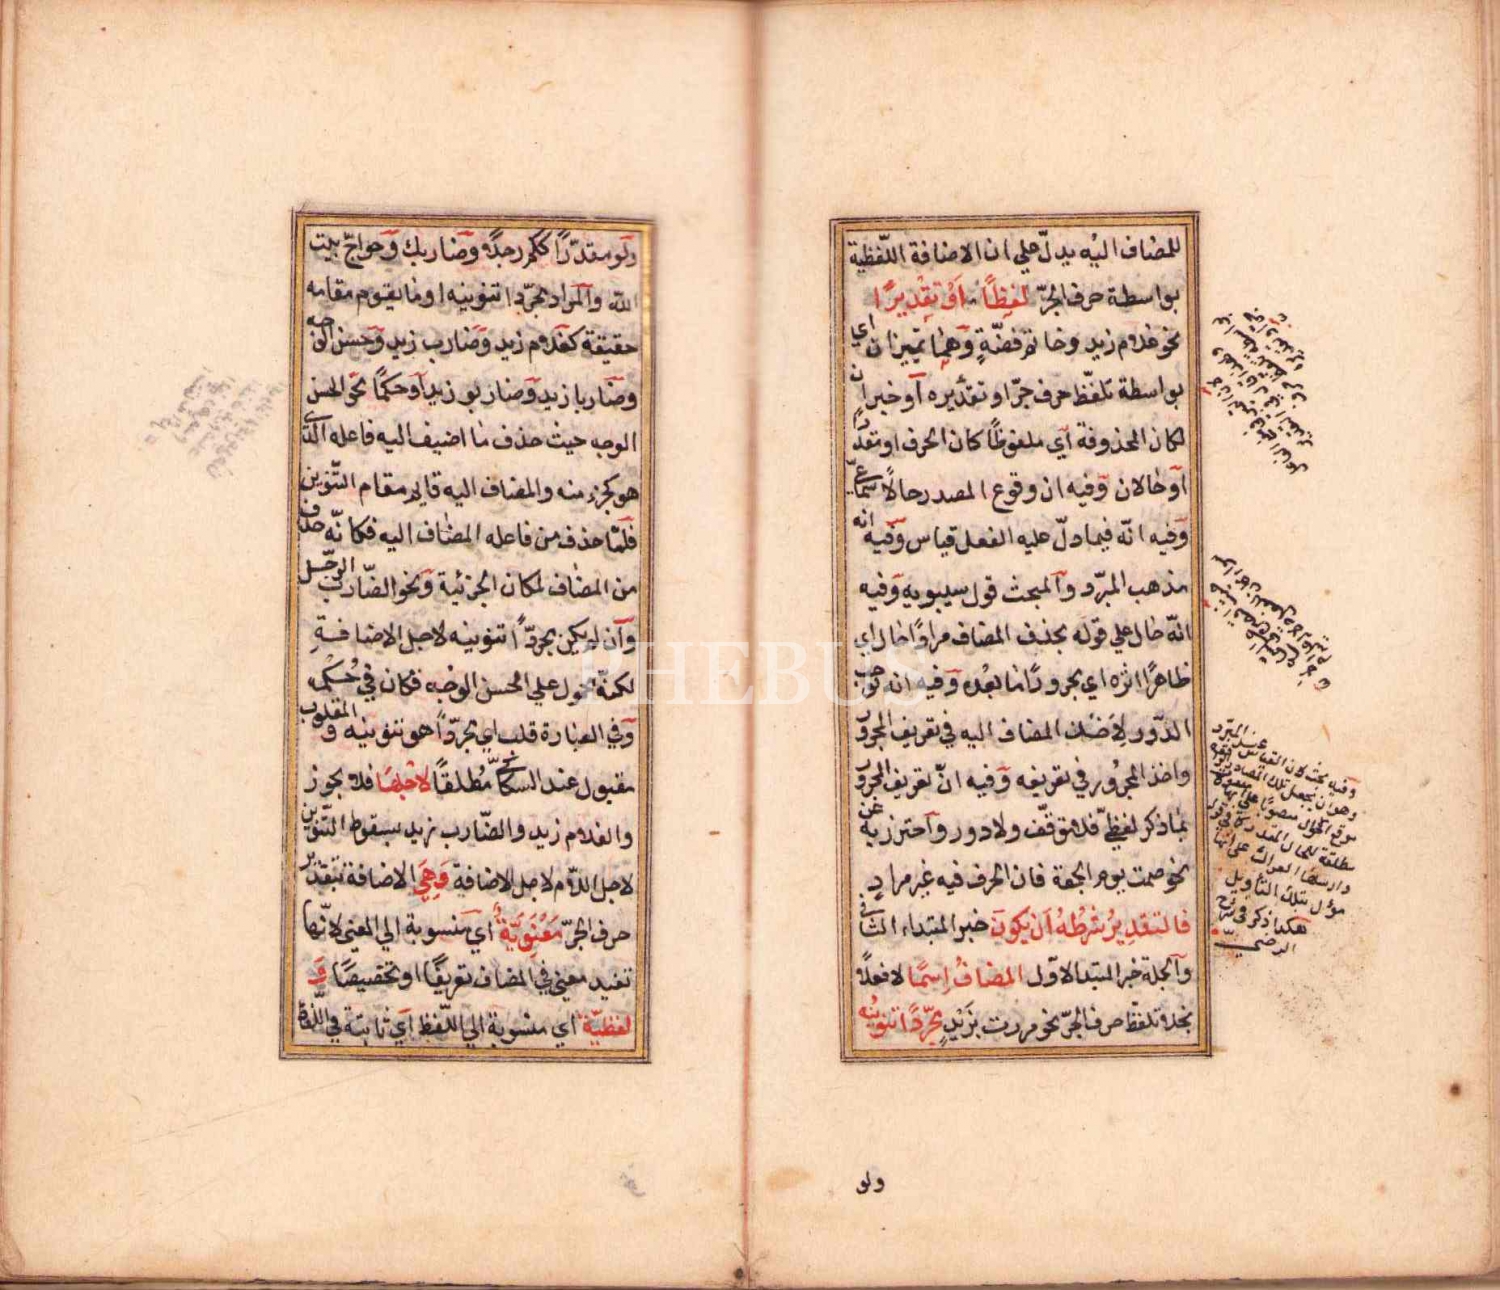 للمضاف اليه يدلّ على ان الاضافة اللّفظية
بواسطة حرف الجرّ لفظًا أو تقديرًا
نحو غلام زيد وخاتم فضّةٍ وهما تميزان اي
بواسطة تلفّظ حرف جرّ او تقديره أو خبرا ن
لكان المحذوفة أي ملفوظًا كان الحرف او مقدّرا
أو حالان وفيه ان وقوع المصدر حالا سماعيّ
وفيه انّه فيما دلّ عليه الفعل قياس وفيه انه
مذهب المبرّد والمبحث قول سيبويه وفيه
انّه حال على قوله بحذف المضاف مرادًا حال اي
ظاهرًا اثره اي مجرورًا ما بعده وفيه انه توجب
الدّور لأخذك المضاف اليه في تعريف المجرور
واخذ المجرور في تعريفه وفيه انّ تعريف المجرور
بما ذكر لفظيّ فلا توقّف ولا دور واحترز به عن
نحو صمت يوم الجمعة فان الحرف فيه غير مرادٍ
فالتقدير شرطه أن يكون خبر المبتداء الثانى
والجملة خبر المبتدا الاوّل المضاف إسمًا لا فعلا
بخلا تلفّظ حرف الجرّ نحو مررت بزيدٍ مجرّدًا تنوينه
ولو
وفيه بحث لان القياس عند المبرد
وهو ان يجعل تلك المصادر
موقع الحال منصوبًا على انها مفعولة
مطلقة للحال المقدر
وارسلها العراك على انها
مؤل بتلك التأويل
هكذا ذكر فى شرح
الرضي
ولو مقدّرًا ككم رجلا وضاربك وحواجّ بيت
اللّه والمراد مجرّدا تنوينه او ما يقوم مقامه
حقيقة كغلام زيد وضارب زيد وحسن الوجه
وضاربا زيد وضاربو زيد أو حكمًا نحو الحسن
الوجه حيث حذف ما اضيف اليه فاعله الّذى
هو كجزء منه والمضاف اليه قايم مقام التّنوين
فلمّا حذف من فاعله المضاف اليه فكانّه حذف
من المضاف لمكان الجزئية ونحو الضّارب الرّجل
وأن لم يكن مجردًّا تنوينه لاجل الاضافةِ
لكنه محمول على الحسن الوجه فكان في حُكمه
وفي العبارة قلب اي مجردًّا هو تنوينه والمقلوب
مقبول عند السكّاكى مُطلقًا لاجلها فلا يجوز
والغلام زيد والضّارب زيد بسقوط التّنوين
لاجل اللّام لا جل الاضافة وهي الاضافة بتقدير
حرف الجرّ معنويّة أي منسوبة الى المعنى لانّها
تفيد معنى في المضاف تعريفًا او تخصيصًا و
لفظيّة أي منسوبة الى اللّفظ أي ثابتة في اللّفظ